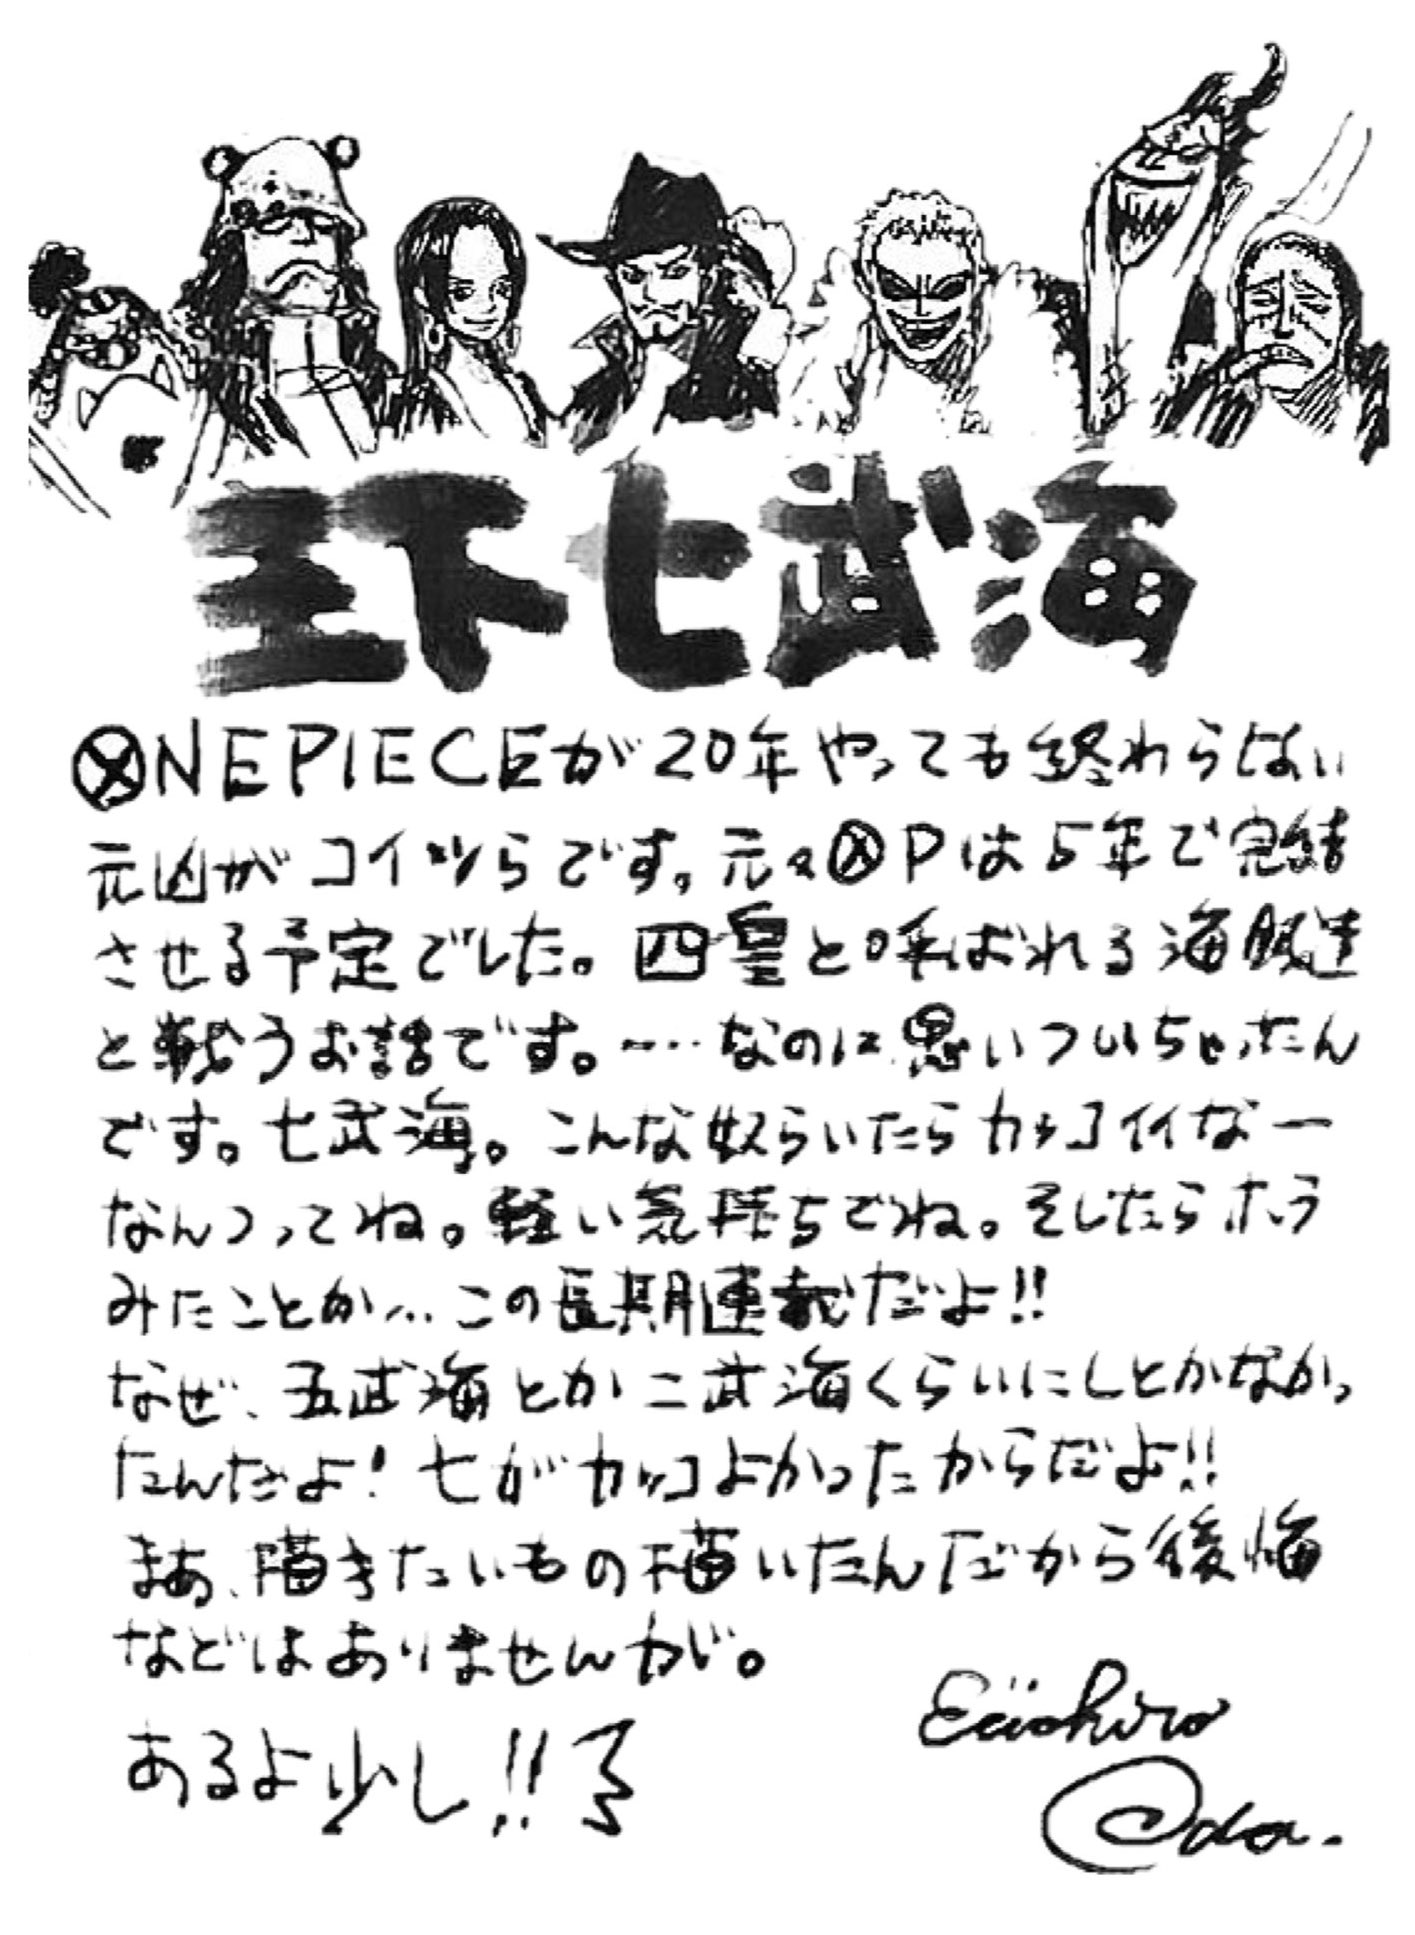 王下七武海
ONE PIECEが20年やっても終わらない
元凶がコイツらです。元々OPは5年で完結
させる予定でした。四皇と呼ばれる海賊達
と戦うお話です。……なのに思いついちゃったん
です。七武海。こんな奴らいたらカッコイイなー
なんつってね。軽い気持ちでね。そしたらホラ
みたことか…この長期連載だよ!!
なぜ、五武海とか二武海くらいにしとかなかっ
たんだよ!七がカッコよかったからだよ!!
まあ、描きたいもの描いたんだから後悔
などはありませんが。
あるよ少し!!
Eiichiro
Oda.